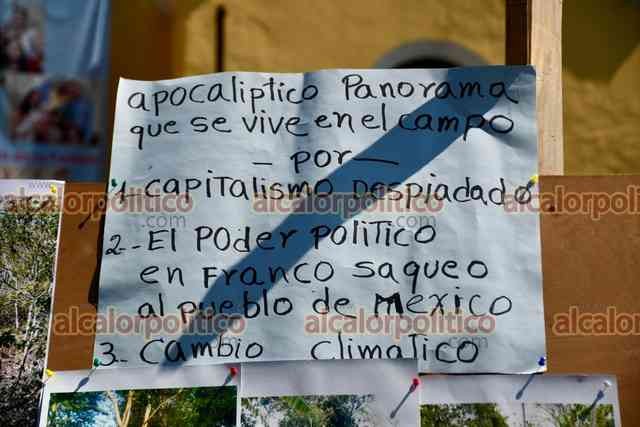 apocaliptico Panorama
que se vive en el campo
— por —
1- capitalismo Despiadado
2- El Poder politico
en Franco saqueo
al pueblo de Mexico
3- Cambio Climatico
www.
alcalorpolitico
.com
alcalorpolitico
.com
alcalorpolitico
.com
alcalorpolitico
.com
alcalorpolitico
.com